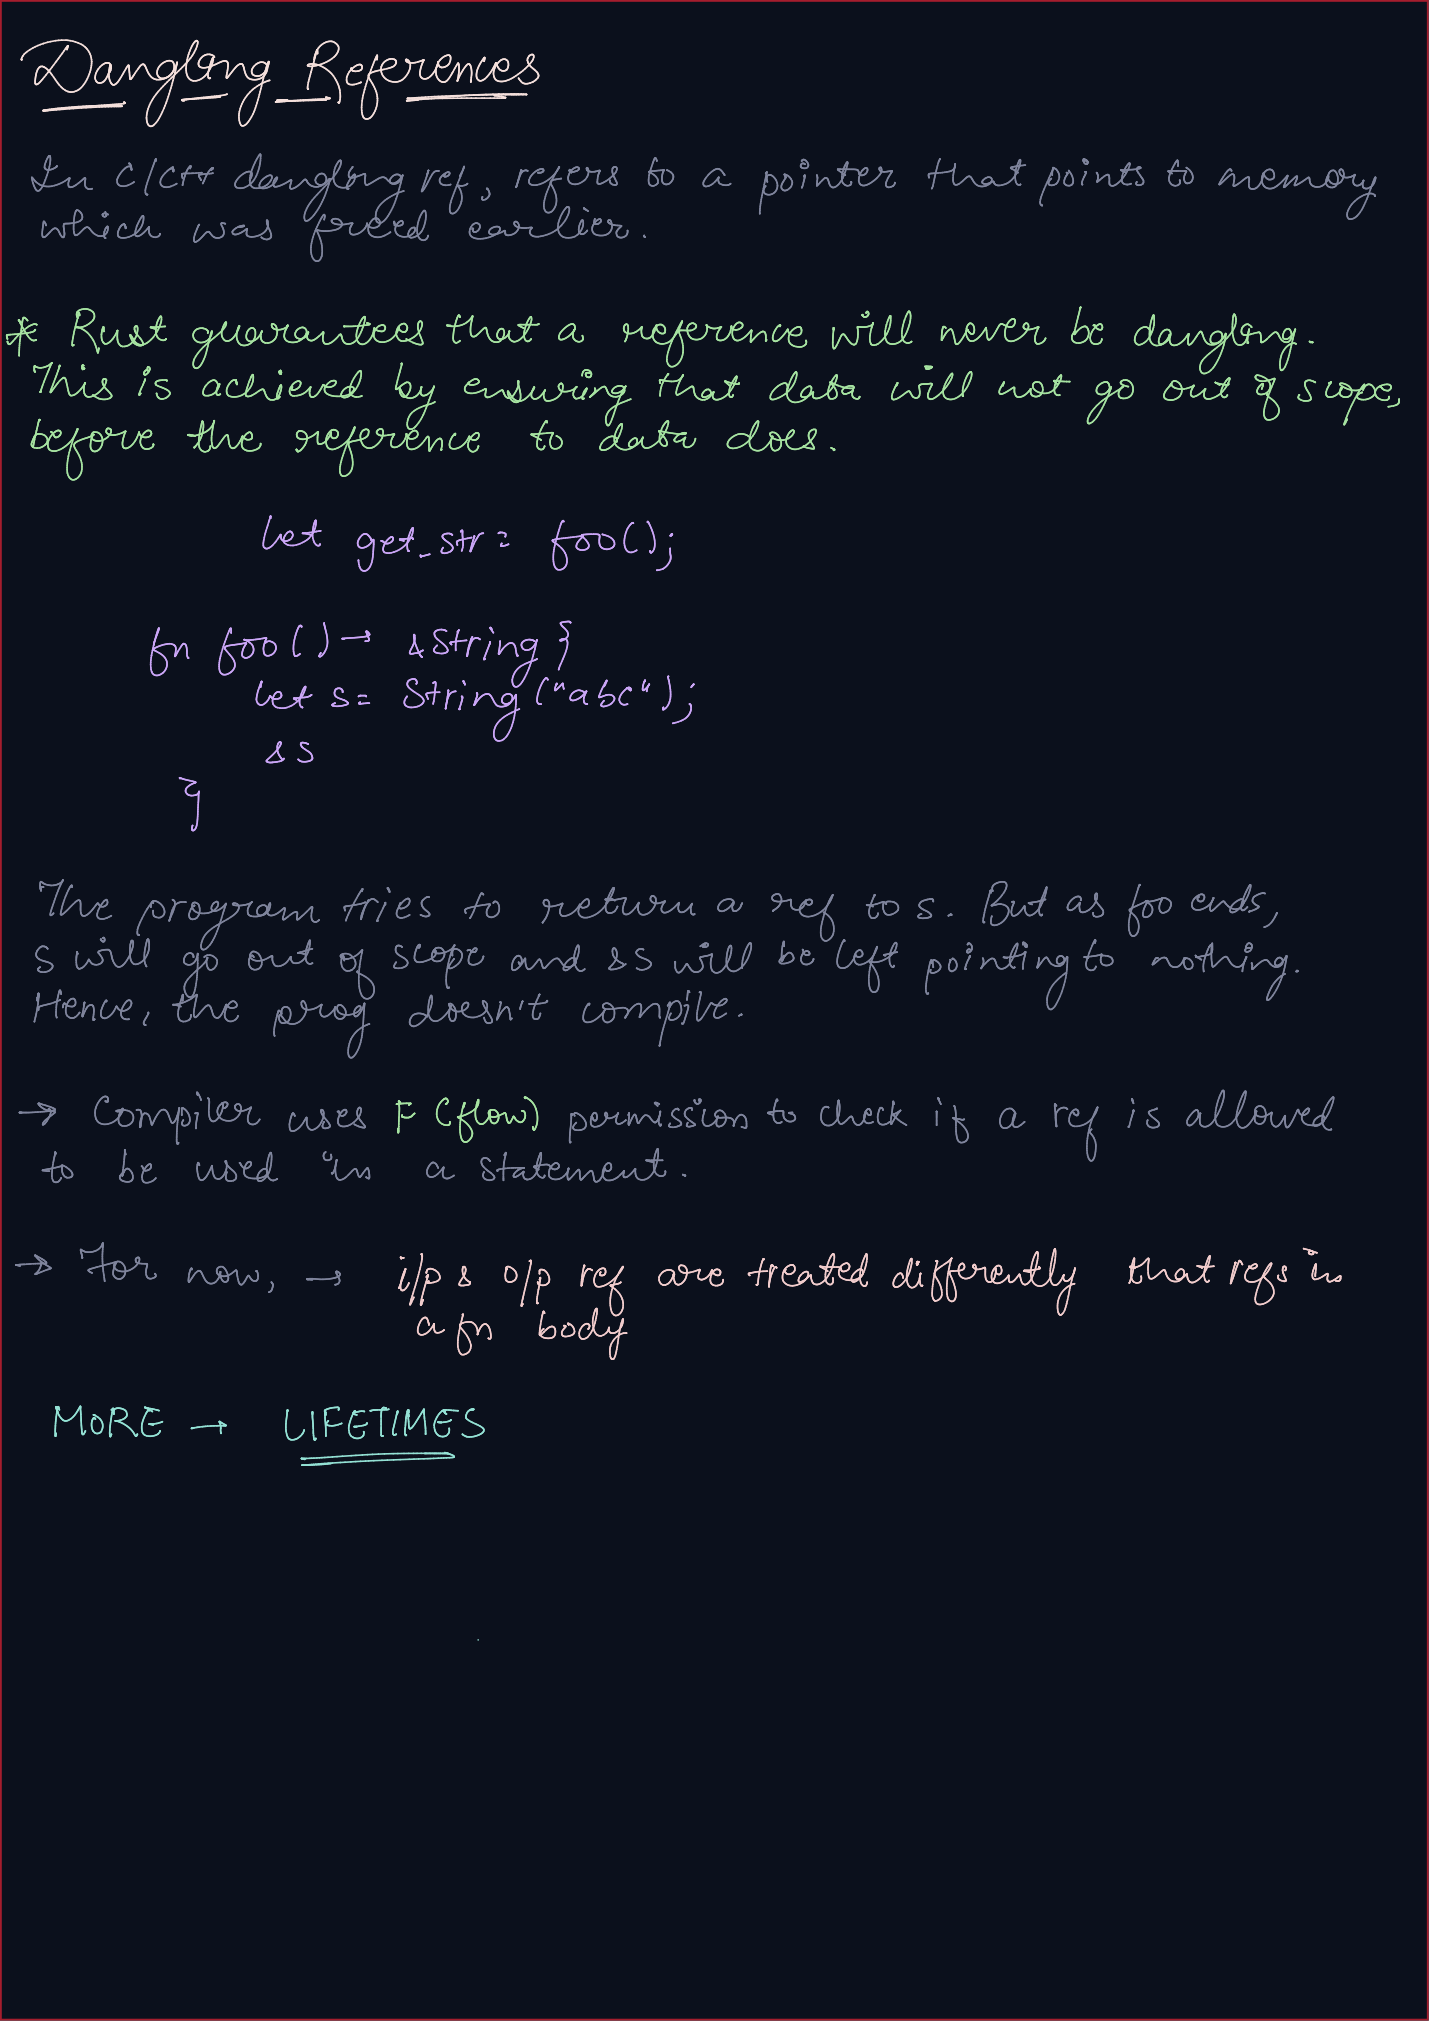 Dangling References
In C/C++ dangling ref, refers to a pointer that points to memory
which was freed earlier.
* Rust guarantees that a reference will never be dangling.
This is achieved by ensuring that data will not go out of scope,
before the reference to data does.
let get_str = foo();
fn foo() → &String {
let s = String("abc");
&s
}
The program tries to return a ref to s. But as foo ends,
s will go out of scope and &s will be left pointing to nothing.
Hence, the prog doesn't compile.
→ Compiler uses F (flow) permission to check if a ref is allowed
to be used in a statement.
→ For now, → i/p & o/p ref are treated differently that refs in
a fn body
MORE → LIFETIMES